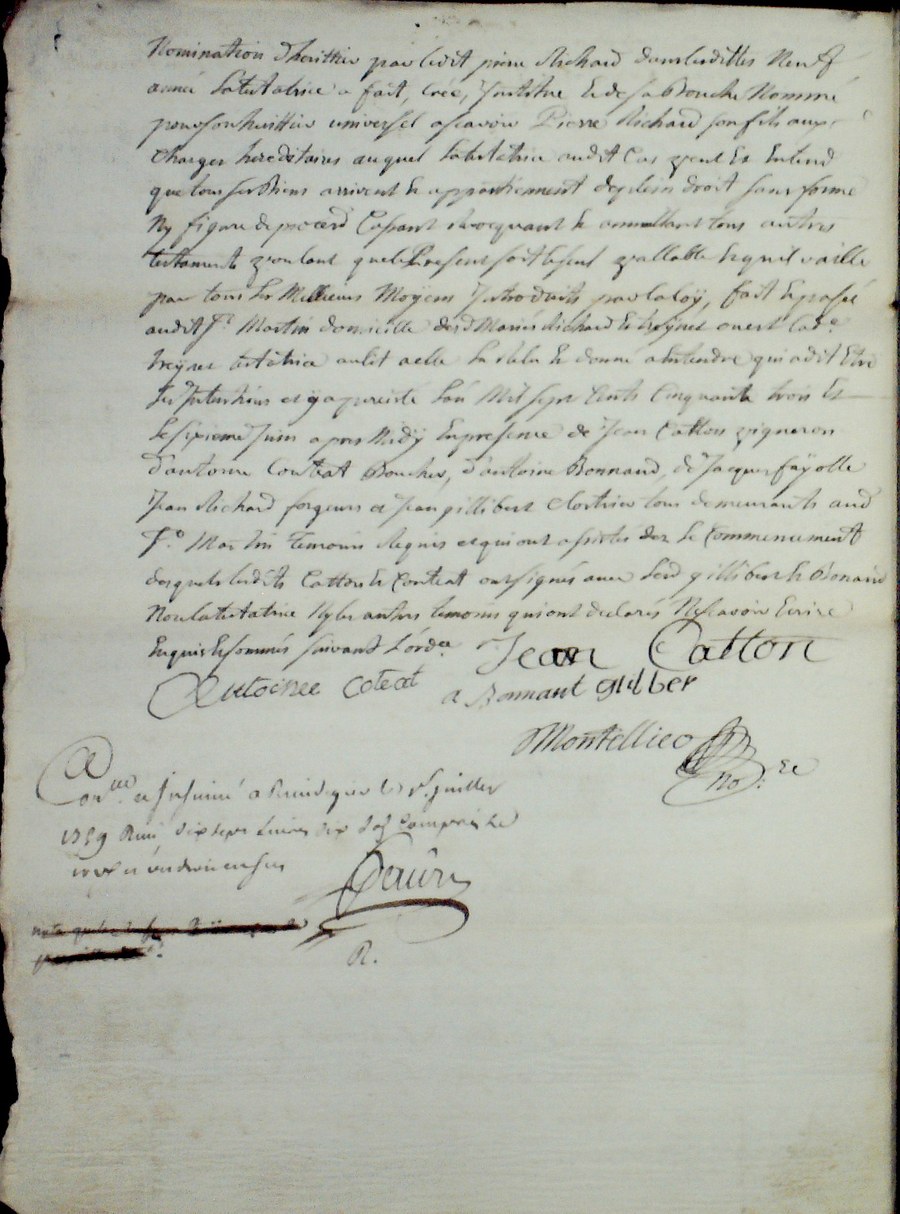 Nomination d'heritier par ledit pierre Richard dans lesdittes Neuf
année Latestatrice a fait, creé, Institue Et de sa Bouche Nommé
pour son heritier universel ascavoir Pierre Richard son fils aux
Charges hereditaires auquel Latestatrice audit Cas veut Et Entend
que tous ses Biens arrivent Et appartiennent de plein droit sans forme
Ny figure de proces Cassant revocquant Et annullant tous autres
testaments voulant que le Present soit le seul vallable Et quil vaille
par tous les Meilleurs Moyens Introduits par la loÿ, fait Et passé
audit St. Martin domicille desd Mariés Richard Et treynet ou est lade.
treynet testatrice au lit a elle Lu relu Et donné a Entendre qui a dit Etre
ses Intentions et y a percisté L'an Mil sept Cents Cinquante trois Et
Le sixieme Juin apres Midÿ En presence de Jean Catton vigneron
d'antoine Conteat Boucher, d'antoine Bonnand, de Jacques fayolle
Jean Richard forgeurs et Jean gillibert Clostrier tous demeurants aud
St. Martin temoins Requis et qui ont assistés dez Le Commencement
desquels lesdits Catton Et Conteat ont signés avec Lesd gillibert Et Bonand
Non la testatrice Ny les autres temoins qui ont declarés Ne scavoir Ecrire
Enquis Et sommés suivant L'ordce
Jean Catton
Antoinee Coteat
a Bonnant gilber
Montellier
no:re
Conlle. et Insinué a le 1er. juillet
1759 Reçu dix sept Livres dix sols Compris Le
Seaûve
R.